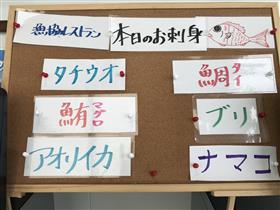 漁協レストラン
本日のお刺身
タチウオ
鯛タイ
鮪マグロ
ブリ
アオリイカ
ナマコ